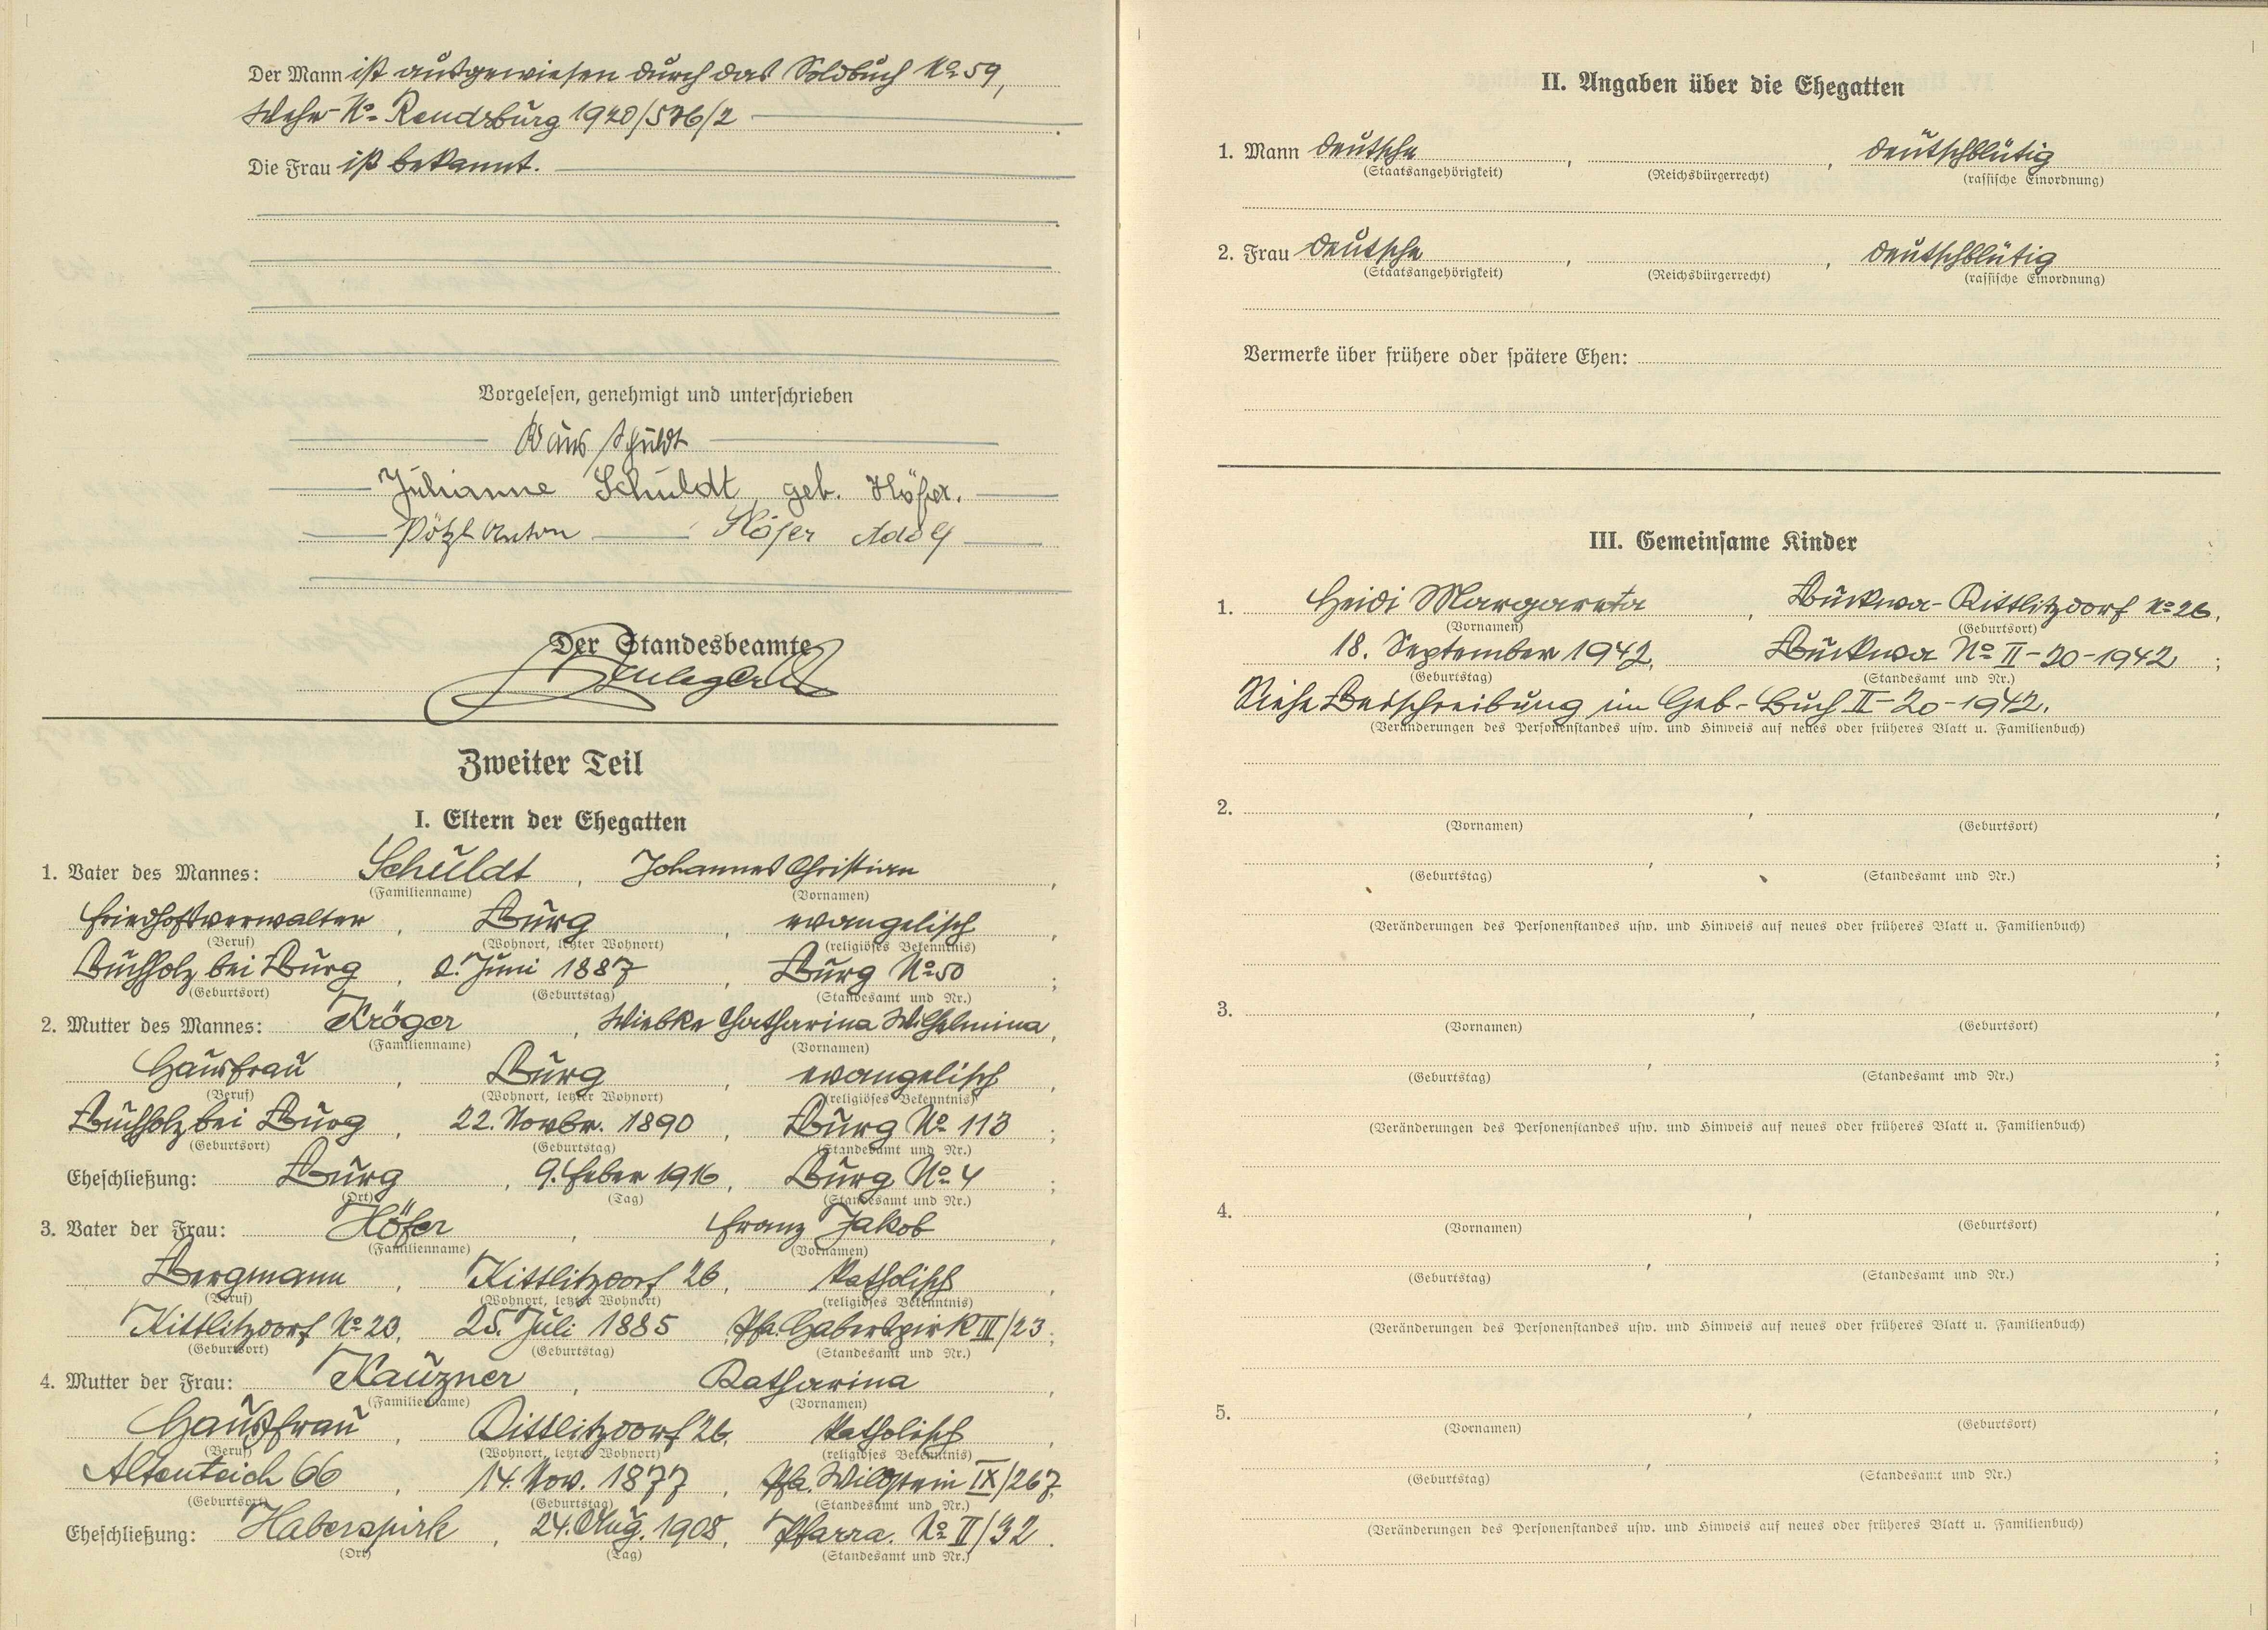 Der Mann ist ausgewiesen durch das Soldbuch No 59,
Wehr-No Rendsburg 1920/536/2
Die Frau ist bekannt.
Vorgelesen, genehmigt und unterschrieben
Hans Schuldt
Julianne Schuldt, geb. Höfer.
Pötzl Anton Höfer Adolf
Der Standesbeamte
Zweiter Teil
I. Eltern der Ehegatten
1. Vater des Mannes: Schuldt, Johannes Christian,
(Familienname) (Vornamen)
Friedhofsverwalter, Burg, evangelisch,
(Beruf) (Wohnort, letzter Wohnort) (religiöses Bekenntnis)
Buchholz bei Burg, 2. Juni 1887, Burg No 50;
(Geburtsort) (Geburtstag) (Standesamt und Nr.)
2. Mutter des Mannes: Kröger, Wiebke Catharina Wilhelmina,
(Familienname) (Vornamen)
Hausfrau, Burg, evangelisch,
(Beruf) (Wohnort, letzter Wohnort) (religiöses Bekenntnis)
Buchholz bei Burg, 22. Novbr. 1890, Burg No 113;
(Geburtsort) (Geburtstag) (Standesamt und Nr.)
Eheschließung: Burg, 9. Feber 1916, Burg No 4;
(Ort) (Tag) (Standesamt und Nr.)
3. Vater der Frau: Höfer, Franz Jakob,
(Familienname) (Vornamen)
Bergmann, Kittlitzdorf 26, katholisch,
(Beruf) (Wohnort, letzter Wohnort) (religiöses Bekenntnis)
Kittlitzdorf No 23, 25. Juli 1885 Pfa. Haberspirk III/23;
(Geburtsort) (Geburtstag) (Standesamt und Nr.)
4. Mutter der Frau: Kauzner, Katharina,
(Familienname) (Vornamen)
Hausfrau, Kittlitzdorf 26, katholisch,
(Beruf) (Wohnort, letzter Wohnort) (religiöses Bekenntnis)
Altenteich 66, 14. Nov. 1877, Pfa. Wildstein IX/267
(Geburtsort) (Geburtstag) (Standesamt und Nr.)
Eheschließung: Haberspirk, 24. Aug. 1908, Pfarra. No II/32.
(Ort) (Tag) (Standesamt und Nr.)
II. Angaben über die Ehegatten
1. Mann deutsche, , deutschblütig
(Staatsangehörigkeit) (Reichsbürgerrecht) (rassische Einordnung)
2. Frau deutsche, , deutschblütig
(Staatsangehörigkeit) (Reichsbürgerrecht) (rassische Einordnung)
Vermerke über frühere oder spätere Ehen:
III. Gemeinsame Kinder
1. Heidi Margareta, Buckwa-Kittlitzdorf No 26,
(Vornamen) (Geburtsort)
18. September 1942, Buckwa No II-20-1942;
(Geburtstag) (Standesamt und Nr.)
Siehe Beischreibung im Geb.-Buch II-20-1942.
(Veränderungen des Personenstandes usw. und Hinweis auf neues oder früheres Blatt u. Familienbuch)
2. , ,
(Vornamen) (Geburtsort)
, ;
(Geburtstag) (Standesamt und Nr.)
(Veränderungen des Personenstandes usw. und Hinweis auf neues oder früheres Blatt u. Familienbuch)
3. , ,
(Vornamen) (Geburtsort)
, ;
(Geburtstag) (Standesamt und Nr.)
(Veränderungen des Personenstandes usw. und Hinweis auf neues oder früheres Blatt u. Familienbuch)
4. , ,
(Vornamen) (Geburtsort)
, ;
(Geburtstag) (Standesamt und Nr.)
(Veränderungen des Personenstandes usw. und Hinweis auf neues oder früheres Blatt u. Familienbuch)
5. , ,
(Vornamen) (Geburtsort)
, ;
(Geburtstag) (Standesamt und Nr.)
(Veränderungen des Personenstandes usw. und Hinweis auf neues oder früheres Blatt u. Familienbuch)